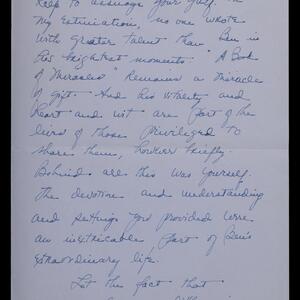 help to assuage your grief. In
my estimation, no one wrote
with greater talent than Ben in
his brightest moments. "A Book
of Miracles" remains a miracle
of gift. And his vitality and
heart and wit are part of the
lives of those privileged to
share them, however briefly.
Behind all this was yourself.
The devotion and understanding
and settings you provided were
an inextricable part of Ben's
extraordinary life.
Let the fact that